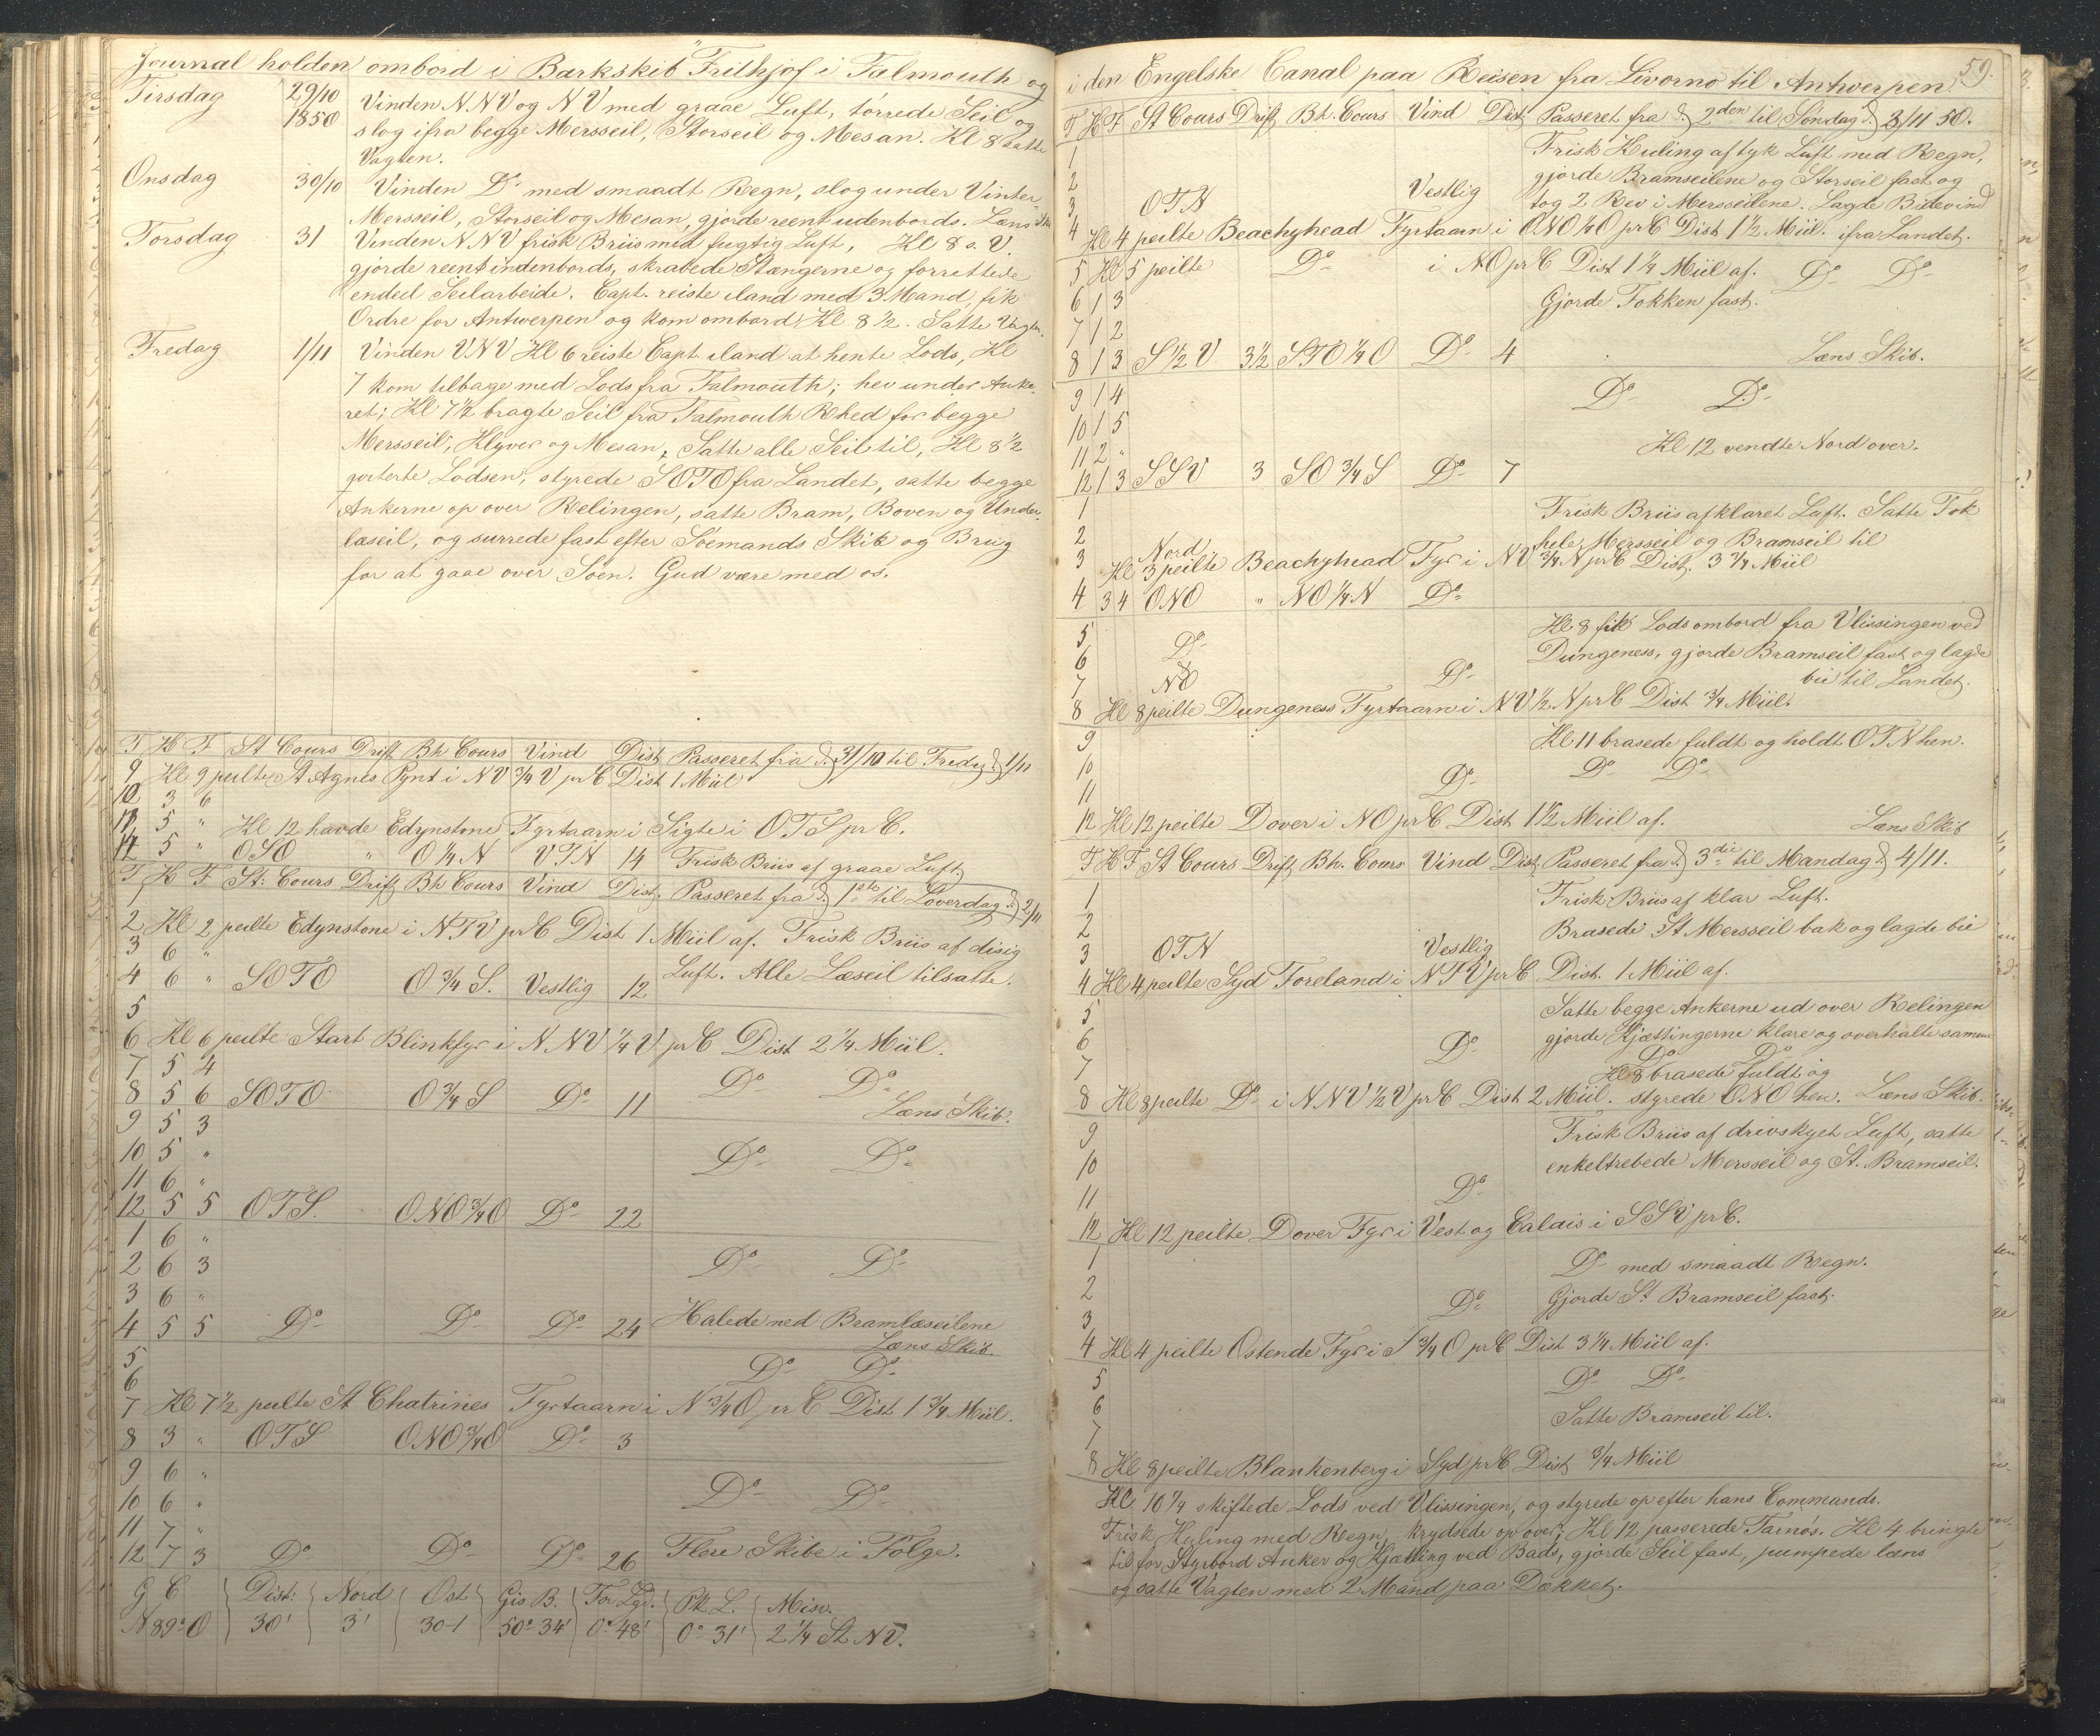 Journal holden ombord i Barkskib "Frithjof i Falmouth og
Tirsdag 29/10 1850 Vinden NNV og NV med graae Luft, törrede Seil og
slog ifra begge Mersseil, Storseil og Mesan. Kl 8 satte
Vagten.
Onsdag 30/10 Vinden Do med smaadt Regn, slog under Vinter
Mersseil, Storseil og Mesan, gjorde reent udenbords. Læns Skib
Torsdag 31 Vinden NNV frisk Briis med fugtig Luft, Kl 8 a. V.
gjorde reent indenbords, skrabede Stængerne og forrettede
endeel Seilarbeide. Capt. reiste iland med 3 Mand, fik
Ordre for Antwerpen og kom ombord Kl 8 1/2. Satte Vagten.
Fredag 1/11 Vinden VNV Kl 6 reiste Capt iland at hente Lods, Kl
7 kom tilbage med Lods fra Falmouth; hev under Anke-
ret; Kl 7 1/2 bragte Seil fra Falmouth Rhed for begge
Mersseil, Klyver og Mesan, Satte alle Seil til, Kl 8 1/2
qviterte Lodsen, styrede SOTO fra Landet, satte begge
Ankerne op over Relingen, satte Bram, Boven og Under-
læseil, og surrede fast efter Söemands Skik og Brug
for at gaae over Söen. Gud være med os.
T K F St Cours Drift Bh Cours Vind Dist Passeret fra d. 31/10 til Fredag d. 1/11
9 Kl 9 peilte St Agnes Pynt i NV 3/4 V pr C Dist 1 Miil
10 3 6
11 5 " Kl 12 havde Edynstone Fyrtaarn i Sigte i OTS pr C.
12 5 " OSO " O 1/4 N VTN 14 Frisk Briis af graae Luft.
T K F St: Cours Drift Bh Cours Vind Dist. Passeret fra d. 1ste til Löverdag d. 2/11
1
2 Kl 2 peilte Edynstone i NTV pr C Dist 1 Miil af. Frisk Briis af disig
3 6 "
4 6 " SOTO O 3/4 S. Vestlig 12 Luft. Alle Læseil tilsatte.
5
6 Kl 6 peilte Start Blinkfyr i N.NV 1/4 V pr C Dist 2 1/4 Miil.
7 5 4 Do Do
8 5 6 SOTO O 3/4 S Do 11 Læns Skib.
9 5 3
10 5 " Do Do
11 6 "
12 5 5 OTS. ONO 3/4 O Do 22
1 6 "
2 6 3 Do Do
3 6 "
4 5 5 Do Do Do 24 Halede ned Bramlæseilene
Læns Skib.
5
6 Do Do
7 Kl 7 1/2 peilte St Chatrines Fyrtaarn i N 3/4 O pr C Dist 1 3/4 Miil.
8 3 " OTS ONO 3/4 O Do 3
9 6 "
10 6 " Do Do
11 7 "
12 7 3 Do Do Do 26 Flere Skibe i Fölge.
G C Dist: Nord Ost Gis B. For Lgd. Pk L. Misv.
N 89° O 30' 3' 30-1 50° 34' 0° 48' 0° 31' 2 1/4 St NV.
59.
i den Engelske Canal paa Reisen fra Livorno til Antwerpen.
T K F St Cours Drift Bh. Cours Vind Dist Passeret fra d. 2den til Söndag d. 3/11 50.
1 Frisk Kuling af tyk Luft med Regn,
2 gjorde Bramseilene og Storseil fast og
3 OTN Vestlig tog 2 Rev i Mersseilene. Lagde Bidevind
4 Kl 4 peilte Beachyhead Fyrtaarn i ONO 1/4 O pr C Dist 1 1/2 Miil. ifra Landet.
5 Kl 5 peilte Do i NO pr C Dist 1 1/4 Miil af. Do Do
6 1 3 Gjorde Fokken fast.
7 1 2
8 1 3 S 1/2 V 3 1/2 STO 1/4 O Do 4 Læns Skib.
9 1 4 Do Do
10 1 5
11 2 " Kl 12 vendte Nord over.
12 1 3 SSV 3 SO 3/4 S Do 7
1 Frisk Briis af klaret Luft. Satte Fok
2 hele Mersseil og Bramseil til
Nord
3 Kl 3 peilte Beachyhead Fyr i NV 3/4 N pr C Dist. 3 3/4 Miil
4 3 4 ONO " NO 1/4 N Do
5 Kl 8 fik Lods ombord fra Vlissingen ved
6 Do Dungeness, gjorde Bramseil fast og lagde
7 NO Do bie til Landet.
8 Kl 8 peilte Dungeness Fyrtaarn i NV 1/2 N pr C Dist 3/4 Miil.
9 Kl 11 brasede fuldt og holdt OTN hen.
10 Do Do
11 Do
12 Kl 12 peilte Dover i NO pr C Dist 1 1/2 Miil af. Læns Skib
T K F St Cours Drift Bh. Cours Vind Dist Passeret fra d. 3die til Mandag d. 4/11.
1 Frisk Briis af klar Luft.
2 Brasede St Mersseil bak og lagde bie
3 OTN Vestlig
4 Kl 4 peilte Syd Foreland i NTV pr C Dist. 1 Miil af.
5 Satte begge Ankerne ud over Relingen
6 Do gjorde Kjættingerne klare og overhalte samme
7 Do Do
Kl 8 brasede fuldt og
8 Kl 8 peilte Do i NNV 1/2 V pr C Dist 2 Miil. styrede ONO hen. Læns Skib.
9 Frisk Briis af drivskyet Luft, satte
10 enkeltrebede Mersseil og St. Bramseil.
11 Do
12 Kl 12 peilte Dover Fyr i Vest og Calais i SSV pr C.
1 Do med smaadt Regn.
2 Do Gjorde St Bramseil fast.
3
4 Kl 4 peilte Ostende Fyr i S 3/4 O pr C Dist 3 1/4 Miil af.
5 Do Do
6 Satte Bramseil til.
7
8 Kl 8 peilte Blankenberg i Syd pr C Dist 3/4 Miil
Kl 10 1/4 skiftede Lods ved Vlissingen, og styrede op efter hans Commando.
Frisk Kuling med Regn, krydsede op over; Kl 12 passerede Tarnös. Kl 4 bringte
til for Styrbord Anker og Kjætting ved Bads, gjorde Seil fast, pumpede læns
og satte Vagten med 2 Mand paa Dækket.